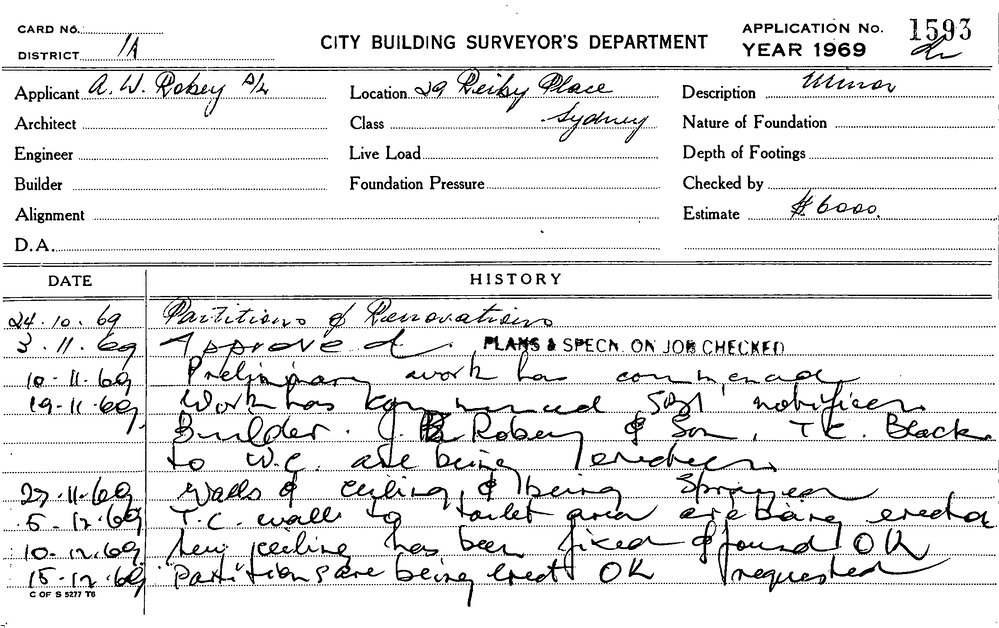 CARD No.
DISTRICT 1A
CITY BUILDING SURVEYOR'S DEPARTMENT
APPLICATION No. 1593
YEAR 1969
Applicant A. W. Robey P/L
Location 29 Reiby Place
Description Minor
Architect
Class Sydney
Nature of Foundation
Engineer
Live Load
Depth of Footings
Builder
Foundation Pressure
Checked by
Alignment
Estimate $6000.
D.A.
DATE HISTORY
24.10.69 Partitions & Renovations
3.11.69 Approved. PLANS & SPECN. ON JOB CHECKED
10.11.69 Preliminary work has commenced
19.11.69 Work has commenced notified
Builder. J. Robey & Son, T.C. Block
to W.C. are being erected
27.11.69 Walls & ceiling being sprayed
5.12.69 T.C. wall to toilet area are being erected
10.12.69 New ceiling has been fixed & found OK
15.12.69 Partitions are being erect OK requested
C OF S 5277 T6